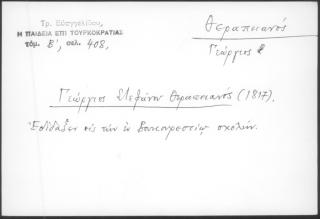 Τρ. Εὐαγγελίδου,
Η ΠΑΙΔΕΙΑ ΕΠΙ ΤΟΥΡΚΟΚΡΑΤΙΑΣ
τόμ. Β', σελ. 408,
Θεραπειανός
Γεώργιος
Γεώργιος Στεφάνου Θεραπειανός (1817).
Ἐδίδαξεν εἰς τὴν ἐν Βουκουρεστίῳ σχολήν.